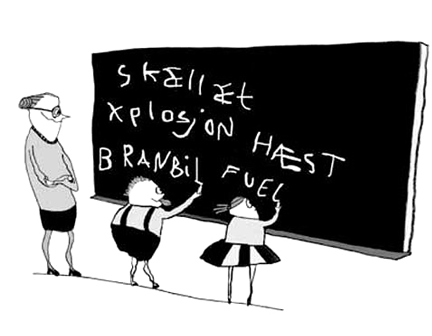 SkÆllÆt
xplosjoN HÆST
BRANBiL FUEL